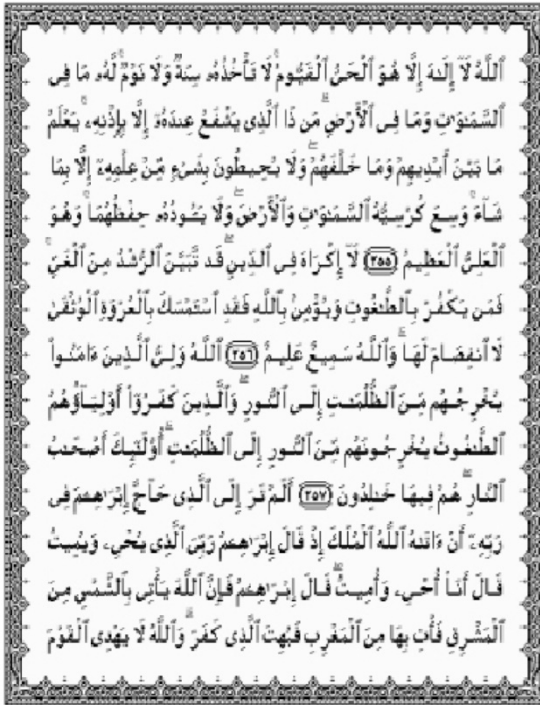 ٱللَّهُ لَآ إِلَـٰهَ إِلَّا هُوَ ٱلۡحَىُّ ٱلۡقَيُّومُۚ لَا تَأۡخُذُهُۥ سِنَةٌ وَلَا نَوۡمٌۚ لَّهُۥ مَا فِى
ٱلسَّمَـٰوَٲتِ وَمَا فِى ٱلۡأَرۡضِۗ مَن ذَا ٱلَّذِى يَشۡفَعُ عِندَهُۥۤ إِلَّا بِإِذۡنِهِۦۚ يَعۡلَمُ
مَا بَيۡنَ أَيۡدِيهِمۡ وَمَا خَلۡفَهُمۡۖ وَلَا يُحِيطُونَ بِشَىۡءٍ مِّنۡ عِلۡمِهِۦۤ إِلَّا بِمَا
شَآءَۚ وَسِعَ كُرۡسِيُّهُ ٱلسَّمَـٰوَٲتِ وَٱلۡأَرۡضَۖ وَلَا يَـُٔودُهُۥ حِفۡظُهُمَاۚ وَهُوَ
ٱلۡعَلِىُّ ٱلۡعَظِيمُ (٢٥٥) لَآ إِكۡرَاهَ فِى ٱلدِّينِۖ قَد تَّبَيَّنَ ٱلرُّشۡدُ مِنَ ٱلۡغَىِّۚ
فَمَن يَكۡفُرۡ بِٱلطَّـٰغُوتِ وَيُؤۡمِنۢ بِٱللَّهِ فَقَدِ ٱسۡتَمۡسَكَ بِٱلۡعُرۡوَةِ ٱلۡوُثۡقَىٰ
لَا ٱنفِصَامَ لَهَاۗ وَٱللَّهُ سَمِيعٌ عَلِيمٌ (٢٥٦) ٱللَّهُ وَلِىُّ ٱلَّذِينَ ءَامَنُواْ
يُخۡرِجُهُم مِّنَ ٱلظُّلُمَـٰتِ إِلَى ٱلنُّورِۖ وَٱلَّذِينَ كَفَرُوٓاْ أَوۡلِيَآؤُهُمُ
ٱلطَّـٰغُوتُ يُخۡرِجُونَهُم مِّنَ ٱلنُّورِ إِلَى ٱلظُّلُمَـٰتِۗ أُوْلَـٰٓئِكَ أَصۡحَـٰبُ
ٱلنَّارِۖ هُمۡ فِيهَا خَـٰلِدُونَ (٢٥٧) أَلَمۡ تَرَ إِلَى ٱلَّذِى حَآجَّ إِبۡرَٲهِـۧمَ فِى
رَبِّهِۦۤ أَنۡ ءَاتَٮٰهُ ٱللَّهُ ٱلۡمُلۡكَ إِذۡ قَالَ إِبۡرَٲهِـۧمُ رَبِّىَ ٱلَّذِى يُحۡىِۦ وَيُمِيتُ
قَالَ أَنَا۟ أُحۡىِۦ وَأُمِيتُۖ قَالَ إِبۡرَٲهِـۧمُ فَإِنَّ ٱللَّهَ يَأۡتِى بِٱلشَّمۡسِ مِنَ
ٱلۡمَشۡرِقِ فَأۡتِ بِهَا مِنَ ٱلۡمَغۡرِبِ فَبُهِتَ ٱلَّذِى كَفَرَۗ وَٱللَّهُ لَا يَهۡدِى ٱلۡقَوۡمَ